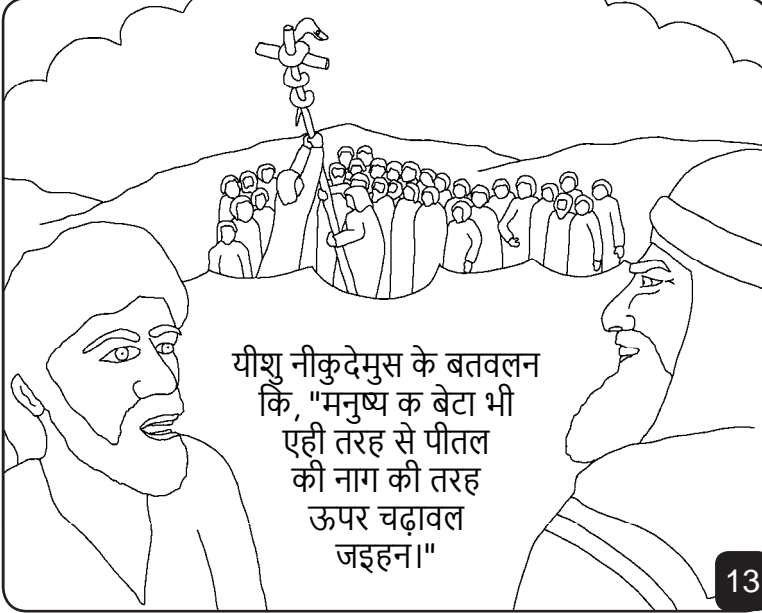 यीशु नीकुदेमुस के बतवलन
कि, "मनुष्य क बेटा भी
एही तरह से पीतल
की नाग की तरह
ऊपर चढ़ावल
जइहन।"
13